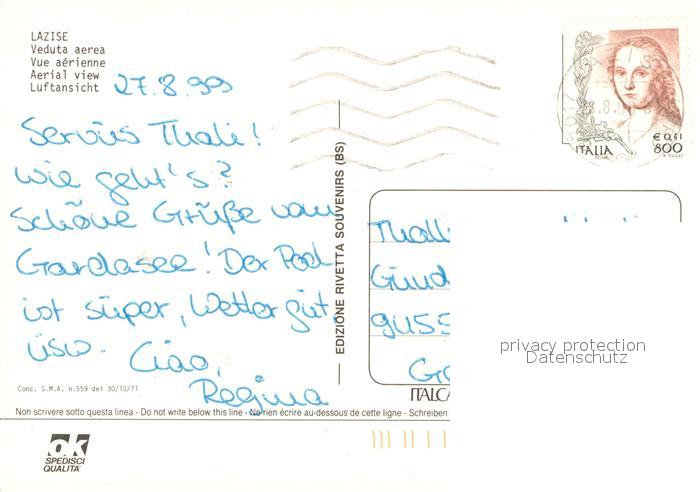 LAZISE
Veduta aerea
Vue aérienne
Aerial view
Luftansicht
27.8.99
Servus Thali!
Wie geht's?
Schöne Grüße vom
Gardasee! Der Pool
ist super, Wetter gut,
usw. Ciao,
Regina
Conc. S.M.A. n.559 del 30/10/71
EDIZIONE RIVETTA SOUVENIRS (BS)
€ 0,41
ITALIA 800
ROMA
Thali
privacy protection
Datenschutz
ITALCA
Non scrivere sotto questa linea - Do not write below this line - Ne rien écrire au-dessous de cette ligne - Schreiben
ok
SPEDISCI
QUALITÀ